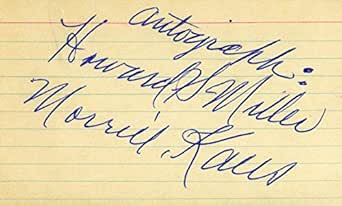 autograph:
Howard S Miller
Morrill, Kans